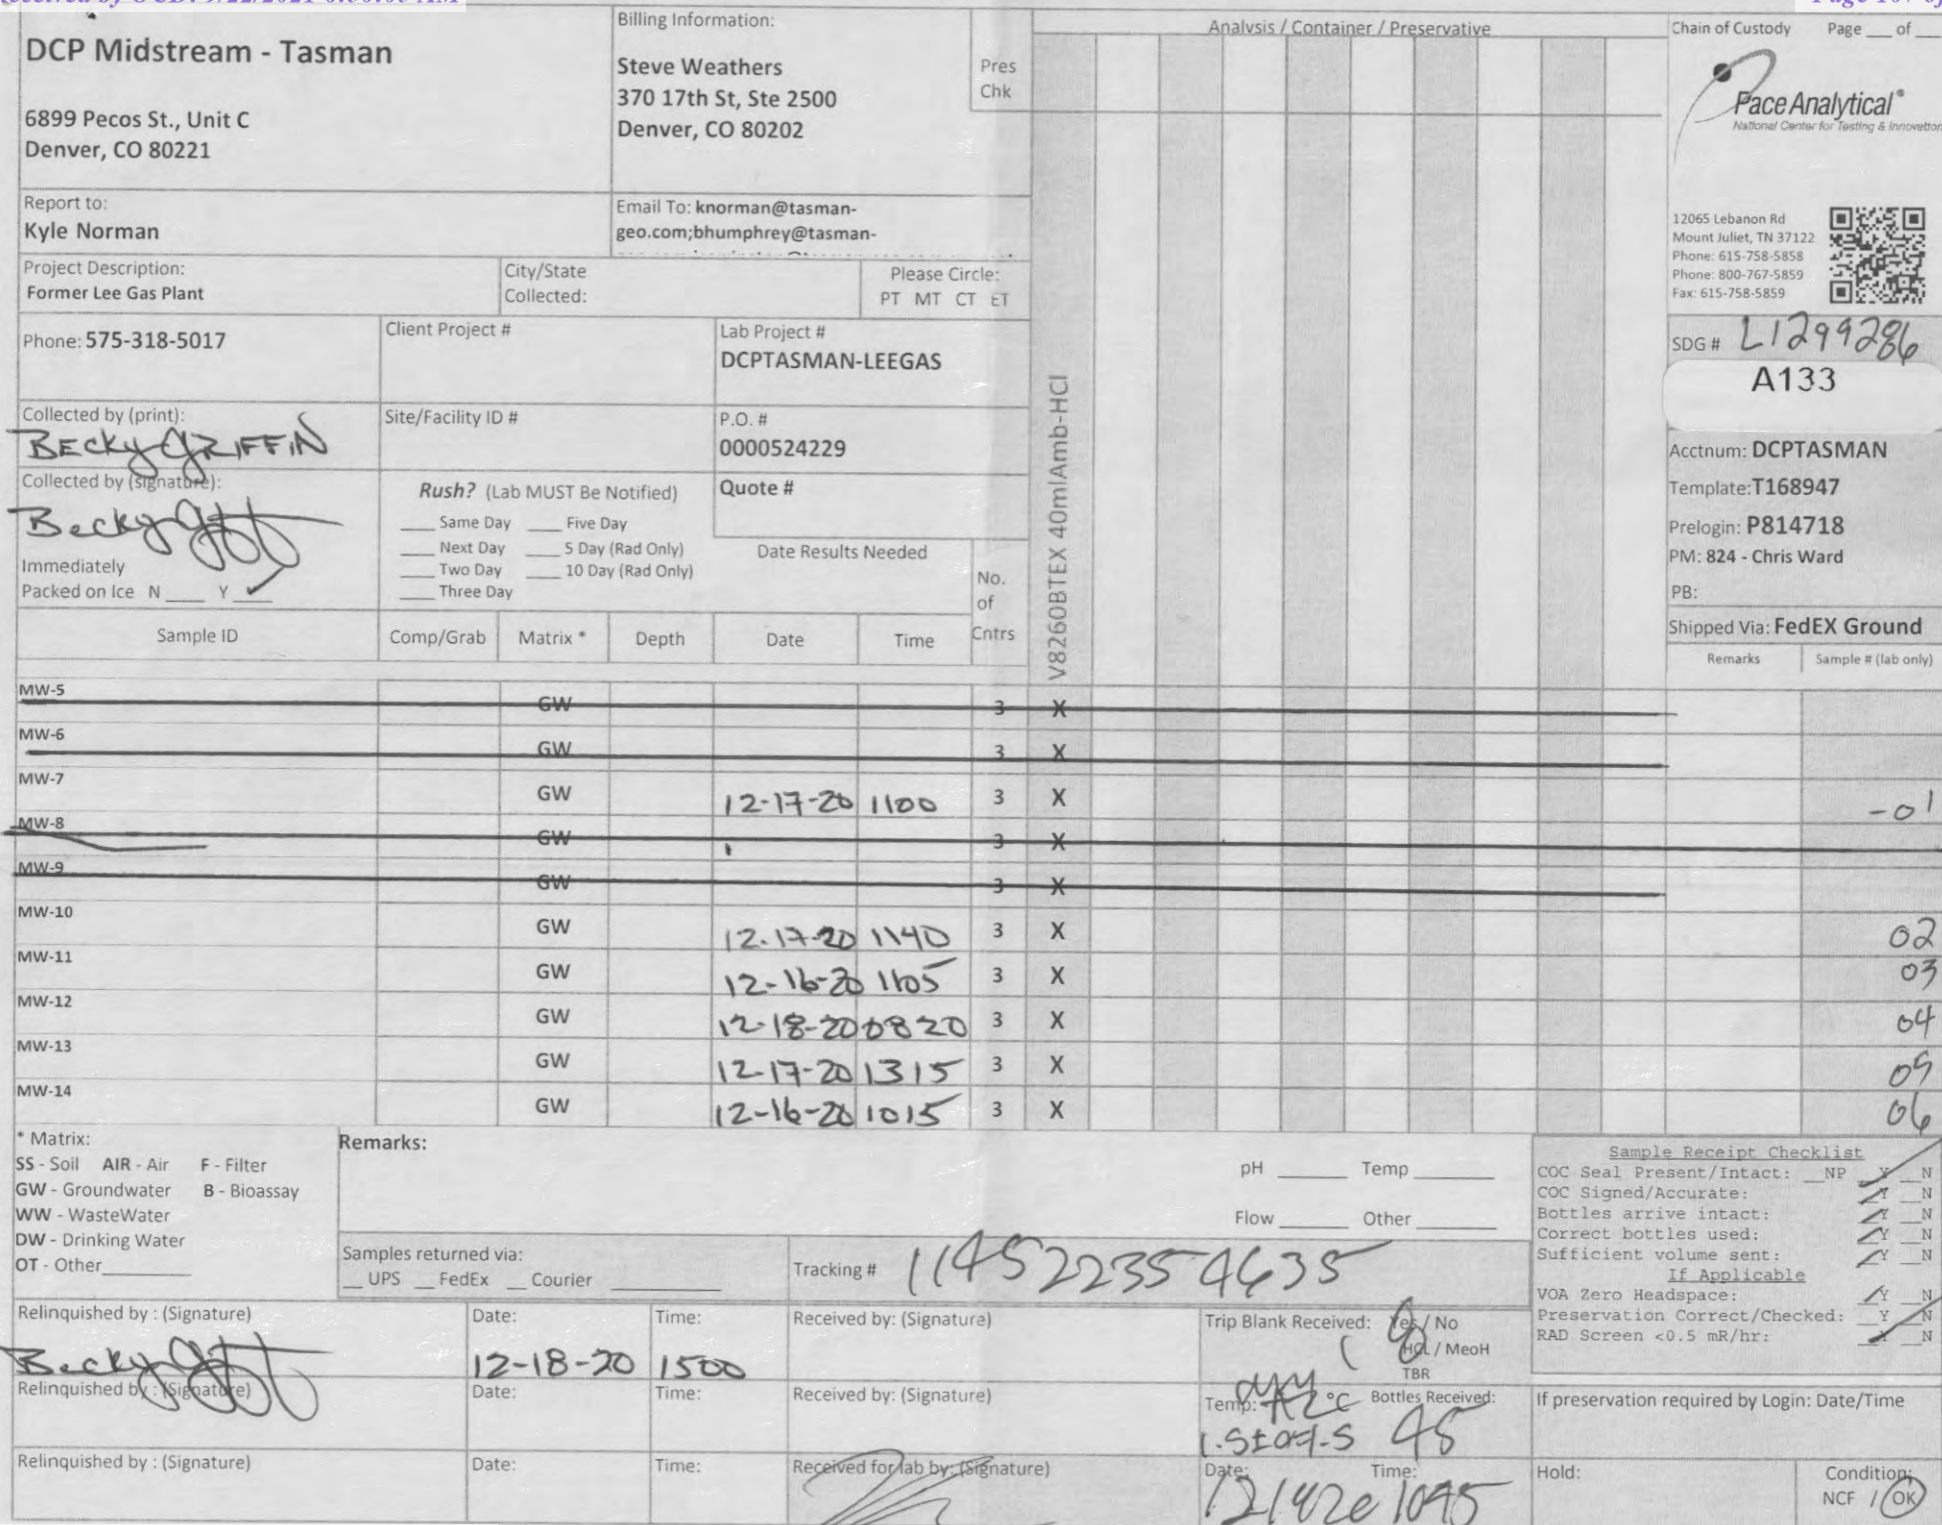 Received by OCD: 9/22/2021 6:50:05 AM
Page 107 of
DCP Midstream - Tasman
6899 Pecos St., Unit C
Denver, CO 80221
Billing Information:
Steve Weathers
370 17th St, Ste 2500
Denver, CO 80202
Pres
Chk
Analysis / Container / Preservative
Chain of Custody Page ___ of ___
Pace Analytical®
National Center for Testing & Innovation
Report to:
Kyle Norman
Email To: knorman@tasman-
geo.com;bhumphrey@tasman-
12065 Lebanon Rd
Mount Juliet, TN 37122
Phone: 615-758-5858
Phone: 800-767-5859
Fax: 615-758-5859
Project Description:
Former Lee Gas Plant
City/State
Collected:
Please Circle:
PT MT CT ET
Phone: 575-318-5017
Client Project #
Lab Project #
DCPTASMAN-LEEGAS
SDG # L1299286
A133
Collected by (print):
BECKY GRIFFIN
Site/Facility ID #
P.O. #
0000524229
Acctnum: DCPTASMAN
Template:T168947
Prelogin: P814718
PM: 824 - Chris Ward
PB:
Shipped Via: FedEX Ground
Collected by (signature):
Becky
Immediately
Packed on Ice N ___ Y ✓
Rush? (Lab MUST Be Notified)
___ Same Day ___ Five Day
___ Next Day ___ 5 Day (Rad Only)
___ Two Day ___ 10 Day (Rad Only)
___ Three Day
Quote #
Date Results Needed
No.
of
Cntrs
V8260BTEX 40mlAmb-HCl
Sample ID Comp/Grab Matrix * Depth Date Time
Remarks Sample # (lab only)
MW-5 GW 3 X
MW-6 GW 3 X
MW-7 GW 12-17-20 1100 3 X -01
MW-8 GW 3 X
MW-9 GW 3 X
MW-10 GW 12-17-20 1140 3 X 02
MW-11 GW 12-16-20 1105 3 X 03
MW-12 GW 12-18-20 0820 3 X 04
MW-13 GW 12-17-20 1315 3 X 05
MW-14 GW 12-16-20 1015 3 X 06
* Matrix:
SS - Soil AIR - Air F - Filter
GW - Groundwater B - Bioassay
WW - WasteWater
DW - Drinking Water
OT - Other
Remarks:
pH ___ Temp ___
Flow ___ Other ___
Samples returned via:
__ UPS __ FedEx __ Courier
Tracking # 114522354635
Sample Receipt Checklist
COC Seal Present/Intact: __NP Y __N
COC Signed/Accurate: Y __N
Bottles arrive intact: Y __N
Correct bottles used: Y __N
Sufficient volume sent: Y __N
If Applicable
VOA Zero Headspace: Y __N
Preservation Correct/Checked: __Y __N
RAD Screen <0.5 mR/hr: Y __N
Relinquished by : (Signature)
Becky
Date:
12-18-20
Time:
1500
Received by: (Signature)
Trip Blank Received: Yes / No
HCL / MeoH
TBR
Relinquished by : (Signature)
Date:
Time:
Received by: (Signature)
Temp: °C
Bottles Received:
45
If preservation required by Login: Date/Time
Relinquished by : (Signature)
Date:
Time:
Received for lab by: (Signature)
Date:
Time:
1045
Hold:
Condition:
NCF / OK